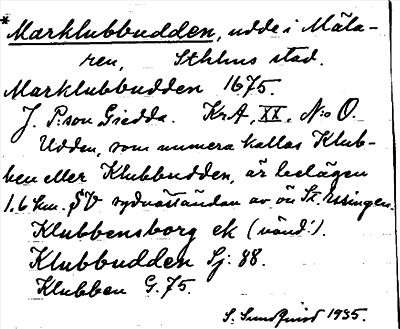 * Marklubbudden, udde i Mäla-
ren, Sthlms stad.
Marklubbudden 1675.
J. P:son Giedda. KrA, XX, N:o O.
Udden, som numera kallas Klub-
ben eller Klubbudden, är belägen
1.6 km. SV sydväständan av ön St. Essingen.
Klubbensborg ek (vänd!).
Klubbudden Sj: 88.
Klubben G. 75.
S. Sundquist 1935.